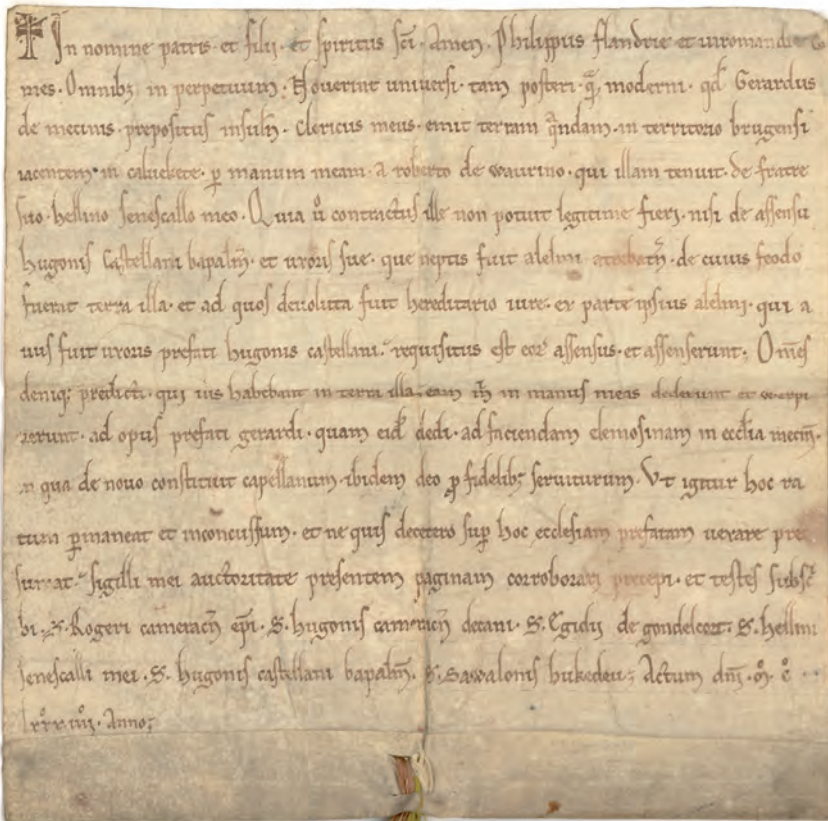 In nomine patris et filii et spiritus sc̄i. Amen. Philippus flandrie et viromandie co
mes. Omnibꝫ in perpetuum. Noverint universi tam posteri q̄ moderni. qd̄ Gerardus
de mecinis prepositus insuln̄. clericus meus. emit terram q̄ndam in territorio brugensi
iacentem in calvekete. ꝑ manum meam. a roberto de waurino. qui illam tenuit de fratre
suo hellino senescallo meo. Quia u̓ contractus ille non potuit legitime fieri. nisi de assensu
hugonis castellani bapalm̄. et uxoris sue. que neptis fuit alelmi atrebatn̄. de cuius feodo
fuerat terra illa. et ad quos devoluta fuit hereditario iure. ex parte ipsius alelmi. qui a
uus fuit uxoris prefati hugonis castellani. requisitus est eoꝝ assensus. et assenserunt. Om̄es
deniqꝫ predicti. qui ius habebant in terra illa. eam in manus meas dederunt et werpi
erunt. ad opus prefati gerardi. quam eid̄ dedi. ad faciendam elemosinam in eccl̄ia mecin̄.
in qua de novo constituit capellanum. ibidem deo ꝓ fidelibꝫ serviturum. Vt igitur hoc ra
tum ꝑmaneat et inconcussum. et ne quis decetero suꝑ hoc ecclesiam prefatam vexare pre
sumat. sigilli mei auctoritate presentem paginam corroborari precepi. et testes subsc̄
bi. S. Rogeri cameracn̄ ep̄i. S. hugonis cameracn̄ decani. S. Egidii de gondelcort. S. hellini
senescalli mei. S. hugonis castellani bapalm̄. S. Sawalonis hukedeu. Actum dn̄i. m̊. c̊.
lxxx iiii. Anno.